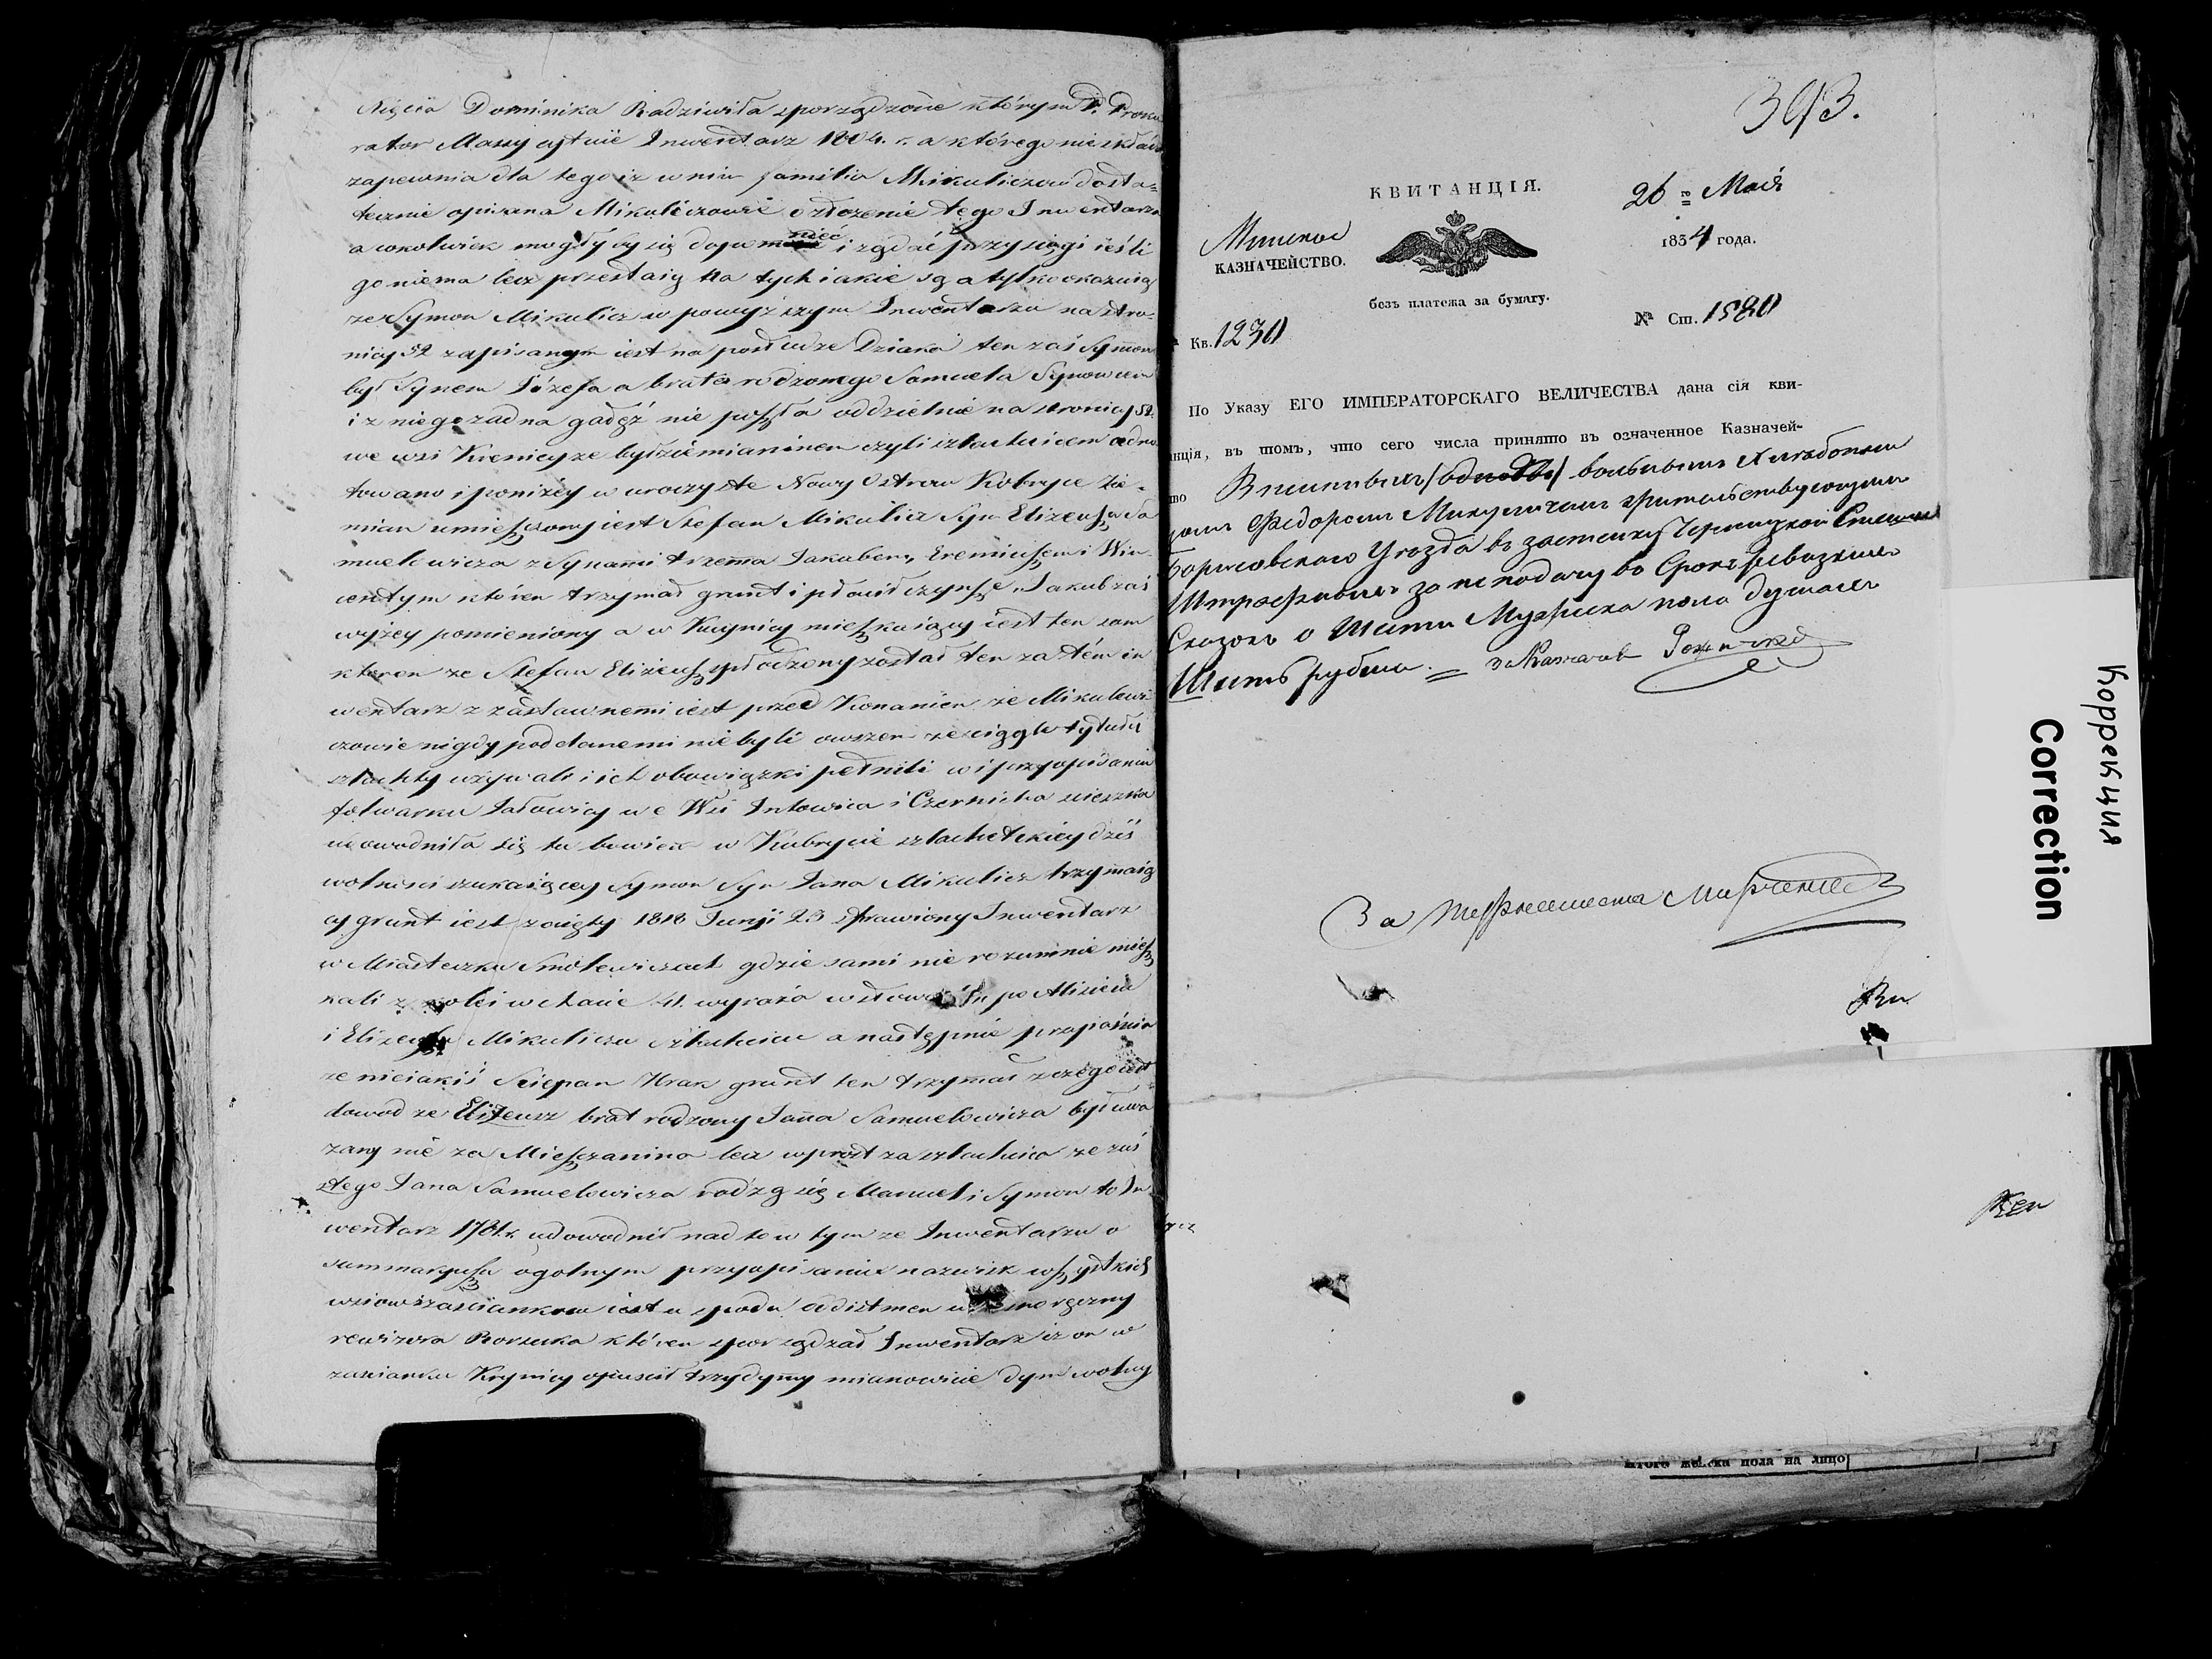 Xięcia Dominika Radziwiła sporządzone którym P. Proku
rator Massy cytuie Inwentarz 1804. r. a którego nie składa
zapewnia dla tego iz w nim familia Mikuliczow dosta=
tecznie opisana Mikuliczowie o złozenie tego Inwentarza
a cokolwiek mogły by się dopomnieć i ządać przysięgi iesli
go niema lecz przestaią na tych iakie są a tylko okazuią
ze Symon Mikulicz w powyższym Inwentarzu na stro-
nicy 52 zapisanym iest na posłudze Dziaka ten zaś Symon
był Synem Józefa a brata rodzonego Samuela Synowcem
i z niego zadna gałęź nie poszła oddzielnie na stronicy 52.
we wsi Krenicy ze był ziemianinem czyli szlachcicem adno
towano i poniżey w uroczyste Nowy Ostrow Kobryce Zie-
mian umieszczony iest Stefan Mikulicz Syn Elizeusza Sa
muelowicza z Synami trzema Jakubem, Eremiuszem i Win-
centym któren trzymał grunt i płacił czynsze, Jakub zaś
wyżey pomieniony a w Krynicy mieszkaiący iest ten sam
ktoren ze Stefan Elizeusz spłodzony został ten zatém in
wentarz z zastawnemi iest przed Konaniem ze Mikulewi
czowie nigdy poddanemi nie byli owszem ze ciągle tytułu
szlachty używali i ich obowiązki pełnili w i przy opisaniu
folwarku we Wsi i Czernicha
udowodniła się tu bowiem w Kubrycie szlacheckiey dziś
wolnosci szukaiącey Symon Syn Jana Mikulicz trzymaią
cy grunt iest zaięty 1818 Junji 23 sprawiony Inwentarz
w Miasteczku Smolewiczach gdzie sami nie rozumnie miesz
kali z kolei w chacie 41. wyraża w słowa
i Elizeusz Mikulicza szlachcicu a następnie przyiaśnia
ze nieiakiś Sciepan Hrak grunt ten trzymał z czego iest
dowod ze Elizeusz brat rodzony Jana Samuelowicza był uwa
zany nie za Mieszczanina lecz wprost za szlachcica ze zaś
z tego Jana Samuelowicza rodzą się Manuel i Symon to In
wentarz 1781. r. udowodnił nad to w tym ze Inwentarzu o
summaryuszu ogolnym przy opisaniu nazwisk wszystkich
wsiow i zascianków iest u spodu
rewizora Borzucka któren sporządzał Inwentarz iz on w
zascianku Krynicy opuscił trzy dymy mianowicie dym wolny
393.
КВИТАНЦІЯ.
26 = Маія
1834 года.
Минское
КАЗНАЧЕЙСТВО.
безъ платежа за бумагу.
№ Ст. 1580
Кв. 1230
По Указу ЕГО ИМПЕРАТОРСКАГО ВЕЛИЧЕСТВА дана сія кви-
нція, въ томъ, что сего числа принято въ означенное Казначей-
тво вольнымъ Хлебопаш
цомъ Федоромъ Микуличемъ жительствующимъ
Борисовскаго Уезда въ застенку
Штрафныхъ за не подачу во Срокъ Ревизкихъ
Сказокъ о Шести Мужеска пола душахъ
Шесть рублей. =
За
Ви
Корректция
Correction
Итого женска пола на лицо